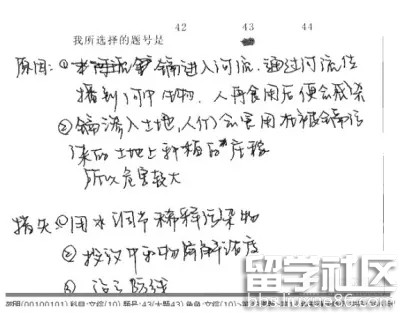 42 43 44
我所选择的题号是
原因：①镉进入河流，通过河流传
播到河中生物，人再食用后便会感染
②镉渗入土地，人们会食用在被镉污
染的土地上种植的庄稼
所以危害较大
措施①用水调节稀释污染物
②投放中和物降解浓度
③
留学社区
bbs.liuxue86.com